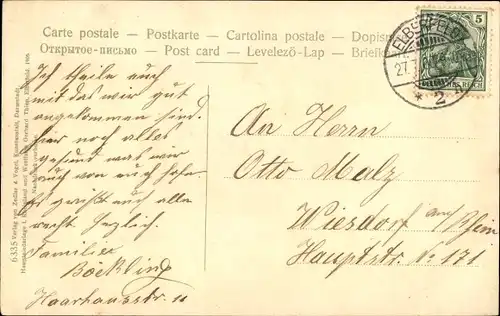 Carte postale — Postkarte — Cartolina postale — Dopisn
Открытое-письмо — Post card — Levelező-Lap — Briefk
5
ELBERFELD
27.
* 2
Ich theile auch
mit das wir gut
angekommen sind.
hier noch alles
gesund was wir
auch von euch hoffen.
Es grüßt euch alle
recht herzlich.
Familie
Böckling
Haarhausstr. 11
An Herrn
Otto Malz
Wiesdorf am/Rhein
Hauptstr. No 171
6335 Verlag von Zedler & Vogel, Kunstanstalt, Darmstadt.